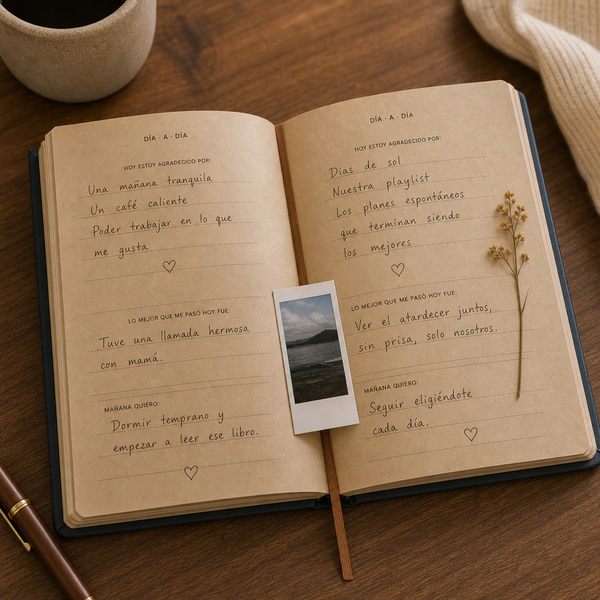 DÍA · A · DÍA
HOY ESTOY AGRADECIDO POR:
Una mañana tranquila
Un café caliente
Poder trabajar en lo que
me gusta
LO MEJOR QUE ME PASÓ HOY FUE:
Tuve una llamada hermosa
con mamá.
MAÑANA QUIERO:
Dormir temprano y
empezar a leer ese libro.
DÍA · A · DÍA
HOY ESTOY AGRADECIDO POR:
Dias de sol
Nuestra playlist
Los planes espontáneos
que terminan siendo
los mejores
LO MEJOR QUE ME PASÓ HOY FUE:
Ver el atardecer juntos,
sin prisa, solo nosotros.
MAÑANA QUIERO:
Seguir eligiéndote
cada día.